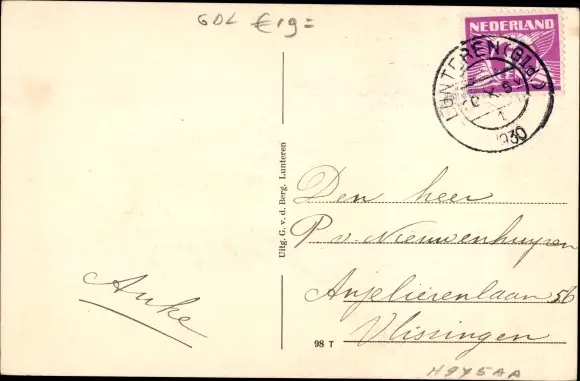 GDL €19=
NEDERLAND
LUNTEREN (Gld.)
1930
Uitg. G. v. d. Berg, Lunteren
Den heer
P. v. Nieuwenhuyzen
Anjelierenlaan 56
Vlissingen
Anke
98 T
H945AA